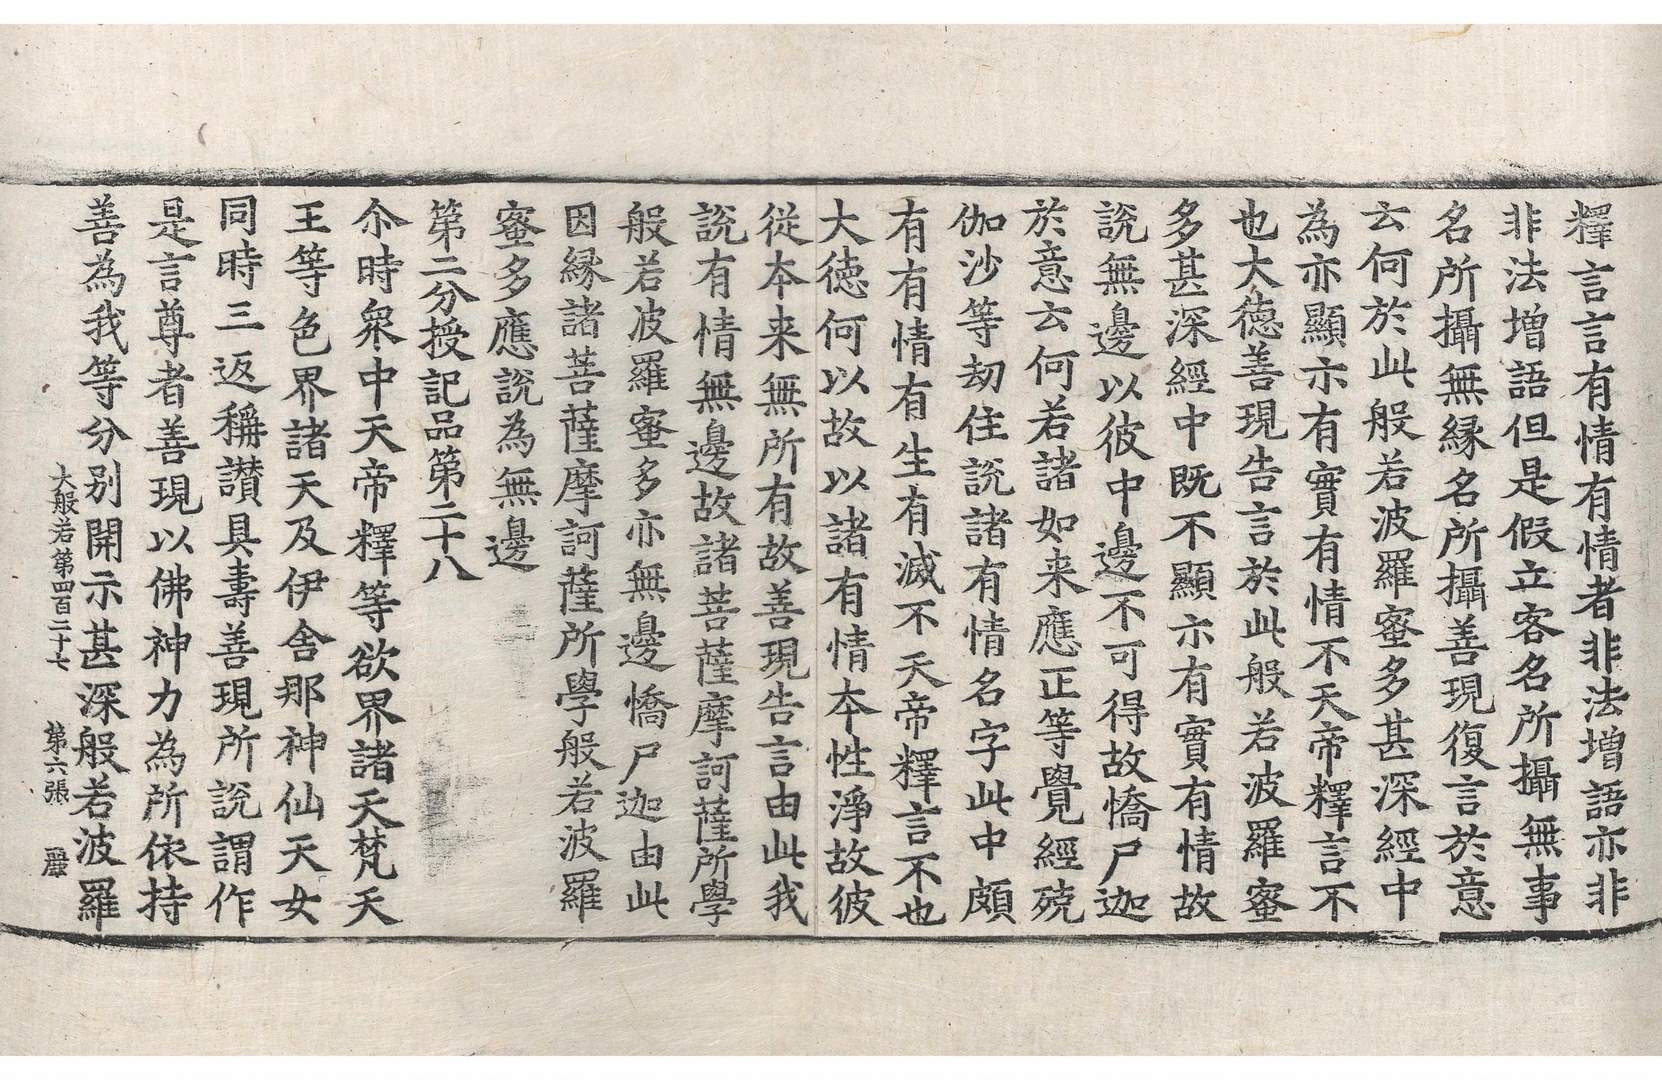 釋言言有情有情者非法增語亦非
非法増語但是假立客名所攝無事
名所攝無縁名所攝善現復言於意
云何於此般若波羅蜜多甚深經中
為亦顯示有實有情不天帝釋言不
也大德善現告言於此般若波羅蜜
多甚深經中既不顯示有實有情故
說無邊以彼中邊不可得故憍尸迦
於意云何若諸如来應正等覺經殑
伽沙等劫住說諸有情名字此中頗
有有情有生有滅不天帝釋言不也
大德何以故以諸有情本性淨故彼
從本来無所有故善現告言由此我
說有情無邊故諸菩薩摩訶薩所學
般若波羅蜜多亦無邊憍尸迦由此
因縁諸菩薩摩訶薩所學般若波羅
蜜多應說為無邊
第二分授記品第二十八
尒時衆中天帝釋等欲界諸天梵天
王等色界諸天及伊舍那神仙天女
同時三返稱讃具壽善現所說謂作
是言尊者善現以佛神力為所依持
善為我等分别開示甚深般若波羅
大般若第四百二十七 第六張 麗